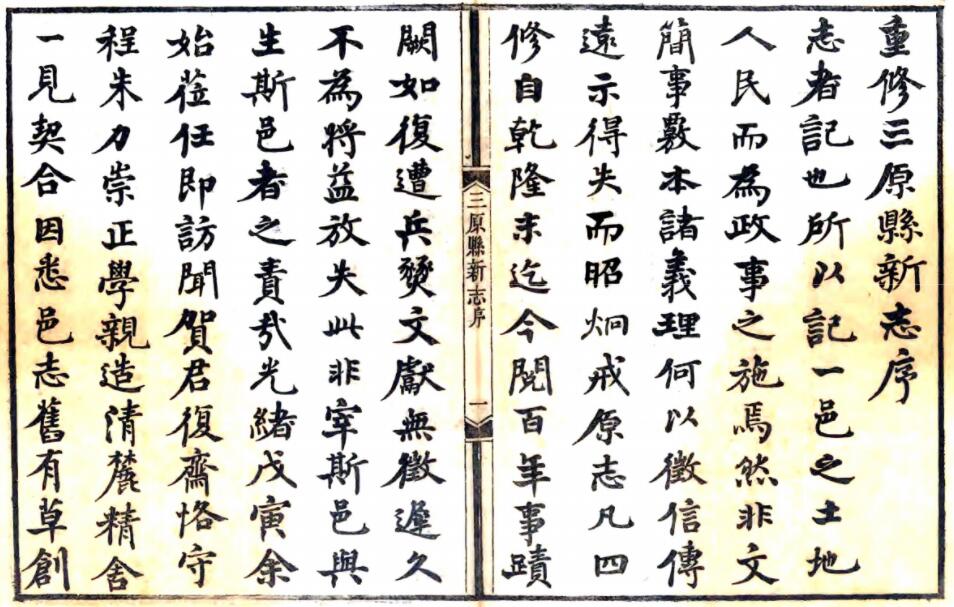 重修三原縣新志序
志者記也所以記一邑之土地
人民而為政事之施焉然非文
簡事覈本諸義理何以徵信傳
遠示得失而昭炯戒原志凡四
修自乾隆末迄今閱百年事蹟
三原縣新志序
一
闕如復遭兵燹文獻無徵遲久
不為將益放失此非宰斯邑與
生斯邑者之責哉光緒戊寅余
始蒞任即訪聞賀君復齋恪守
程朱力崇正學親造清麓精舍
一見契合因悉邑志舊有草創